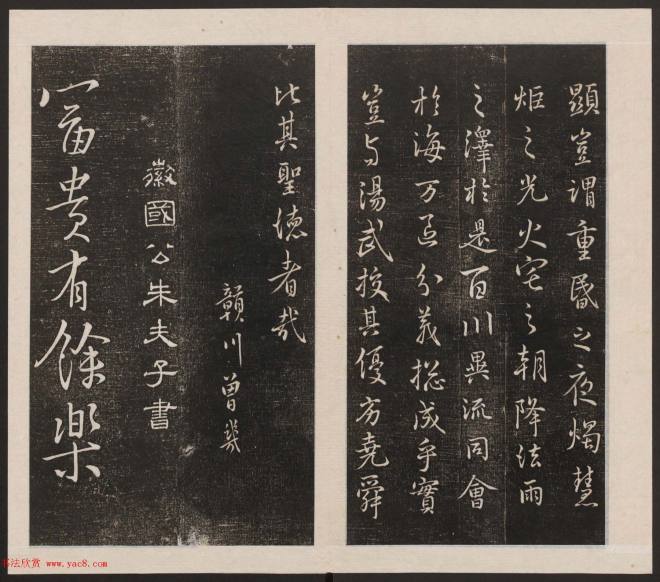 顯豈謂重昏之夜燭慧
炬之光火宅之朝降法雨
之澤於是百川異流同會
於海万區分義揔成乎實
豈与湯武挍其優劣堯舜
比其聖德者哉
贛川曾幾
徽國公朱夫子書
富貴有餘樂
书法欣赏 www.yac8.com